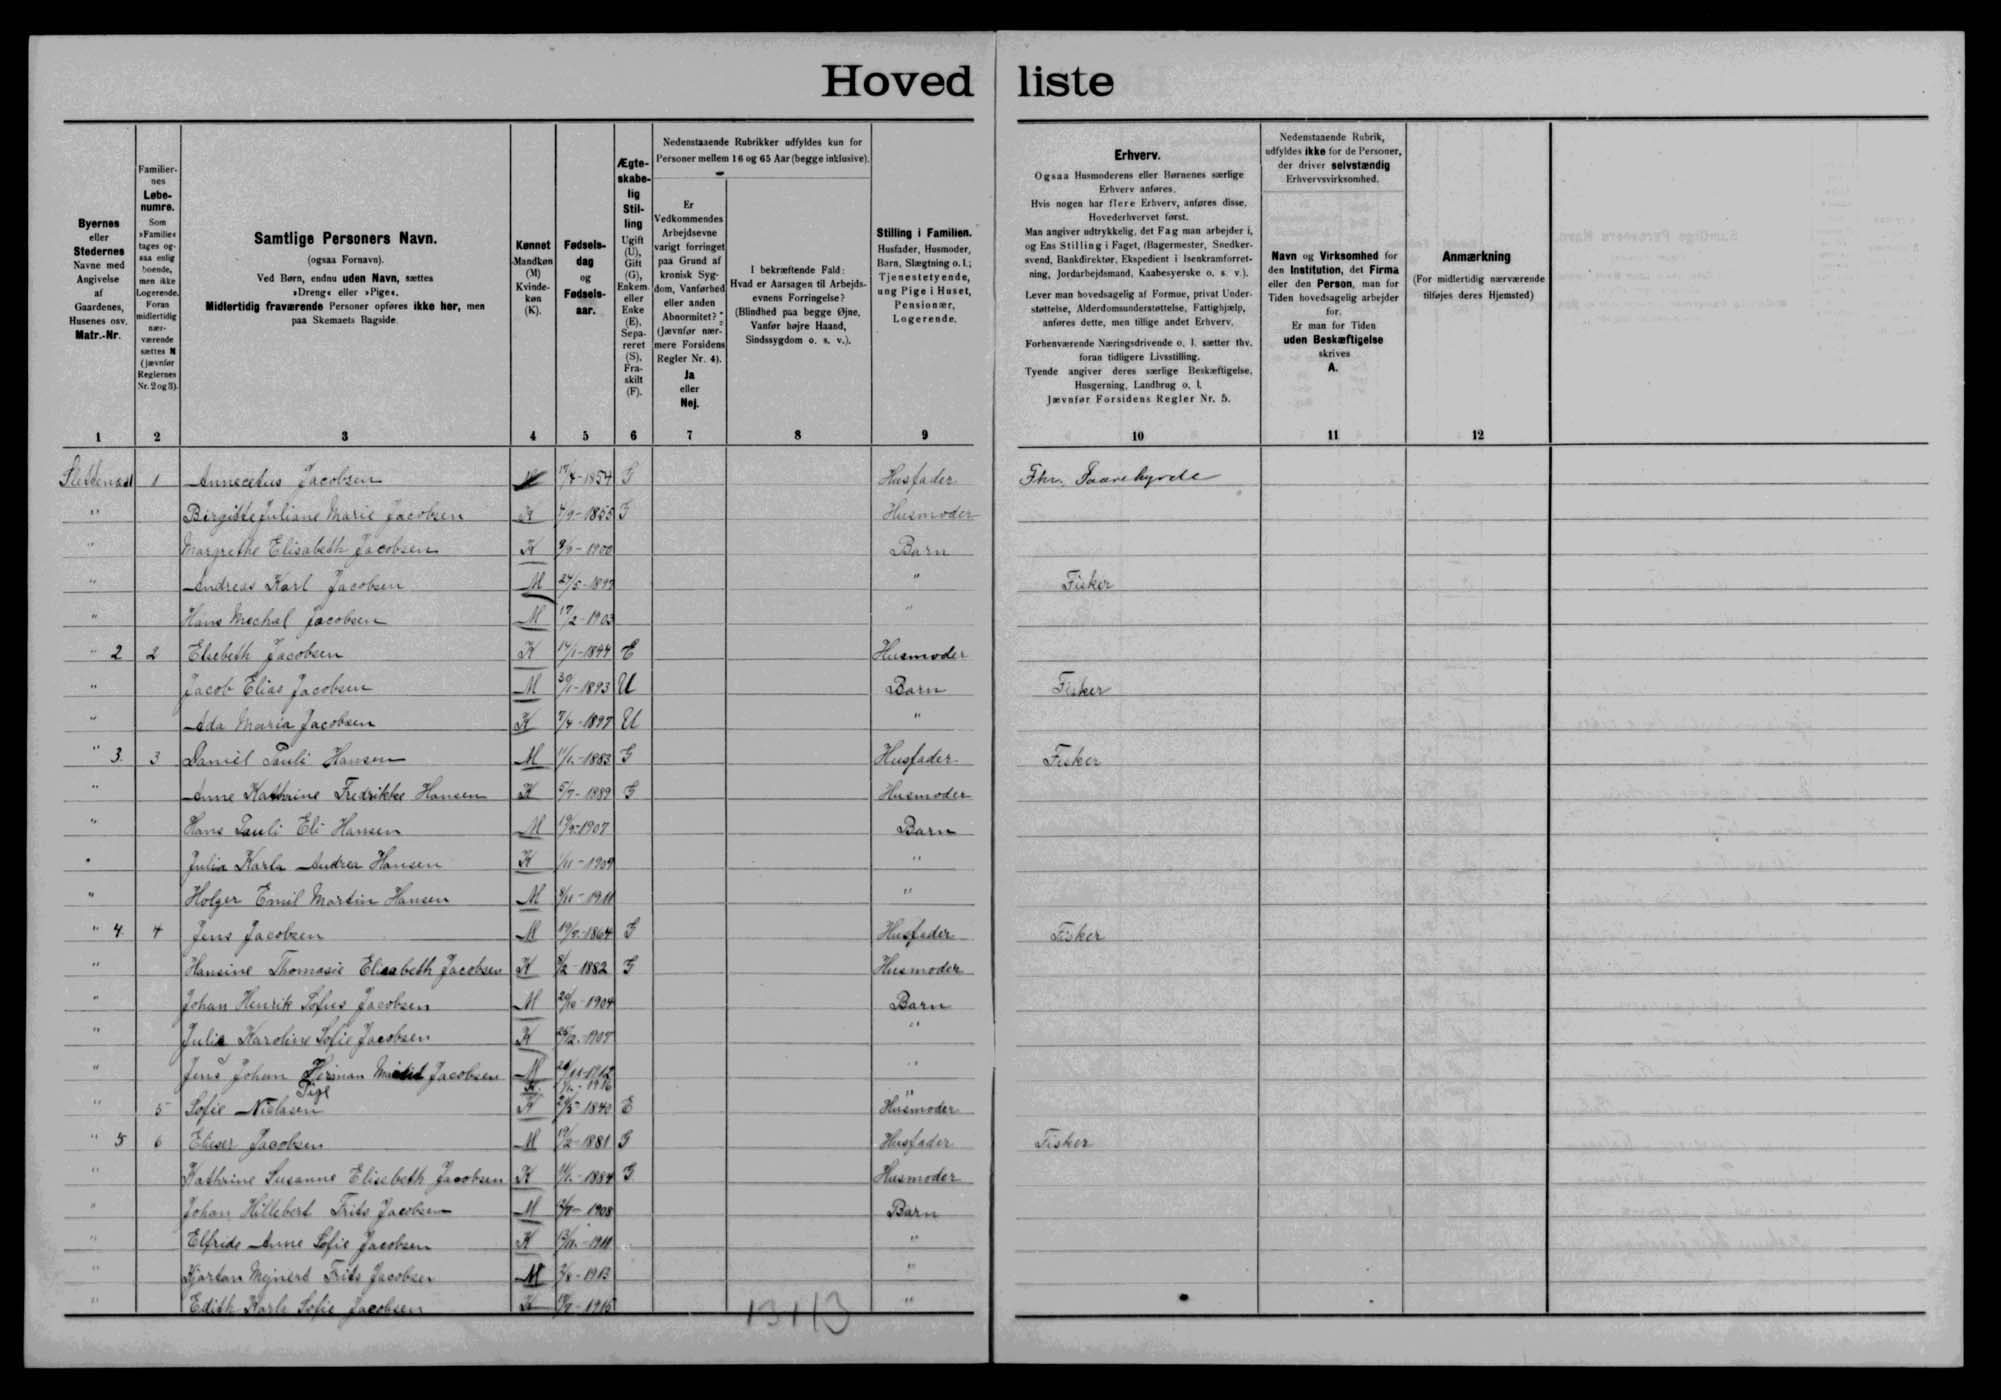 Hoved liste
Byernes
eller
Stedernes
Navne med
Angivelse
af
Gaardenes,
Husenes osv.
Matr.-Nr.
Familier-
nes
Løbe-
numre.
Som
»Familie«
tages og-
saa enlig
boende,
men ikke
Logerende.
Foran
midlertidig
nær-
værende
sættes N
(jævnfør
Reglernes
Nr. 2 og 3).
Samtlige Personers Navn.
(ogsaa Fornavn).
Ved Børn, endnu uden Navn, sættes
»Dreng« eller »Pige«.
Midlertidig fraværende Personer opføres ikke her, men
paa Skemaets Bagside.
Kønnet
Mandkøn
(M)
Kvinde-
køn
(K).
Fødsels-
dag
og
Fødsels-
aar.
Ægte-
skabe-
lig
Stil-
ling
Ugift
(U),
Gift
(G),
Enkem.
eller
Enke
(E),
Sepa-
reret
(S),
Fra-
skilt
(F).
Nedenstaaende Rubrikker udfyldes kun for
Personer mellem 16 og 65 Aar (begge inklusive).
Er
Vedkommendes
Arbejdsevne
varigt forringet
paa Grund af
kronisk Syg-
dom, Vanførhed
eller anden
Abnormitet?
(Jævnfør nær-
mere Forsidens
Regler Nr. 4).
Ja
eller
Nej.
I bekræftende Fald:
Hvad er Aarsagen til Arbejds-
evnens Forringelse?
(Blindhed paa begge Øjne,
Vanfør højre Haand,
Sindssygdom o. s. v.).
Stilling i Familien.
Husfader, Husmoder,
Barn, Slægtning o. l.;
Tjenestetyende,
ung Pige i Huset,
Pensionær,
Logerende.
Erhverv.
Ogsaa Husmoderens eller Børnenes særlige
Erhverv anføres.
Hvis nogen har flere Erhverv, anføres disse,
Hovederhvervet først.
Man angiver udtrykkelig, det Fag man arbejder i,
og Ens Stilling i Faget, (Bagermester, Snedker-
svend, Bankdirektør, Ekspedient i Isenkramforret-
ning, Jordarbejdsmand, Kaabesyerske o. s. v.).
Lever man hovedsagelig af Formue, privat Under-
støttelse, Alderdomsunderstøttelse, Fattighjælp,
anføres dette, men tillige andet Erhverv.
Forhenværende Næringsdrivende o. l. sætter fhv.
foran tidligere Livsstilling.
Tyende angiver deres særlige Beskæftigelse,
Husgerning, Landbrug o. l.
Jævnfør Forsidens Regler Nr. 5.
Nedenstaaende Rubrik,
udfyldes ikke for de Personer,
der driver selvstændig
Erhvervsvirksomhed.
Navn og Virksomhed for
den Institution, det Firma
eller den Person, man for
Tiden hovedsagelig arbejder
for.
Er man for Tiden
uden Beskæftigelse
skrives
A.
Anmærkning
(For midlertidig nærværende
tilføjes deres Hjemsted)
1 2 3 4 5 6 7 8 9 10 11 12
1 Jacobsen M 17/4-1854 G Husfader Fhv.
" Birgitte Juliane Marie Jacobsen K 4/9-1855 G Husmoder
" Margrethe Elisabeth Jacobsen K 8/9-1900 Barn
" Andreas Karl Jacobsen M 24/5-1897 " Fisker
" Hans Jacobsen M 17/2-1903 "
" 2 2 Elsebeth Jacobsen K 14/1-1844 E Husmoder
" Jacob Elias Jacobsen M 30/1-1893 U Barn Fisker
" Ada Maria Jacobsen K 7/4-1897 U "
" 3. 3 Daniel Pauli Hansen M 11/1-1883 G Husfader Fisker
" Anne Kathrine Fredrikke Hansen K 5/7-1889 G Husmoder
" Hans Pauli Eli Hansen M 1907 Barn
" Julia Karla Andrea Hansen K 1/11-1909 "
" Holger Emil Martin Hansen M 8/11-1911 "
" 4. 4 Jens Jacobsen M 1864 G Husfader Fisker
" Hansine Thomasie Elisabeth Jacobsen K 8/2-1882 G Husmoder
" Johan Henrik Sofus Jacobsen M 1904 Barn
" Julia Karoline Sofie Jacobsen K 1907 "
" Jens Johan Herman Jacobsen M 1912 "
Pige K. 1916 "
" 5 Sofie Nielasen K 1840 E Husmoder
" 5 6 Elieser Jacobsen M 1881 G Husfader Fisker
" Kathrine Susanne Elisebeth Jacobsen K 1884 G Husmoder
" Johan Hillebert Frits Jacobsen M 1908 Barn
" Elfride Anne Sofie Jacobsen K 1911 "
" Kjartan Mejnert Frits Jacobsen M 1913 "
" Edith Karla Sofie Jacobsen K 1915 "